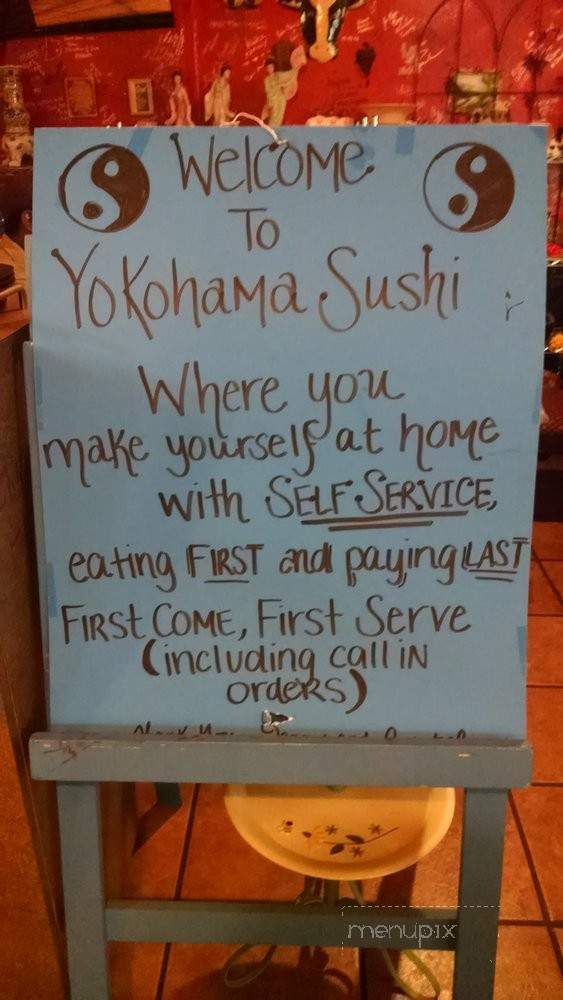 Welcome
To
Yokohama Sushi
Where you
make yourself at home
with SELF SERVICE,
eating FIRST and paying LAST
First Come, First Serve
(including call in
orders)
menupix